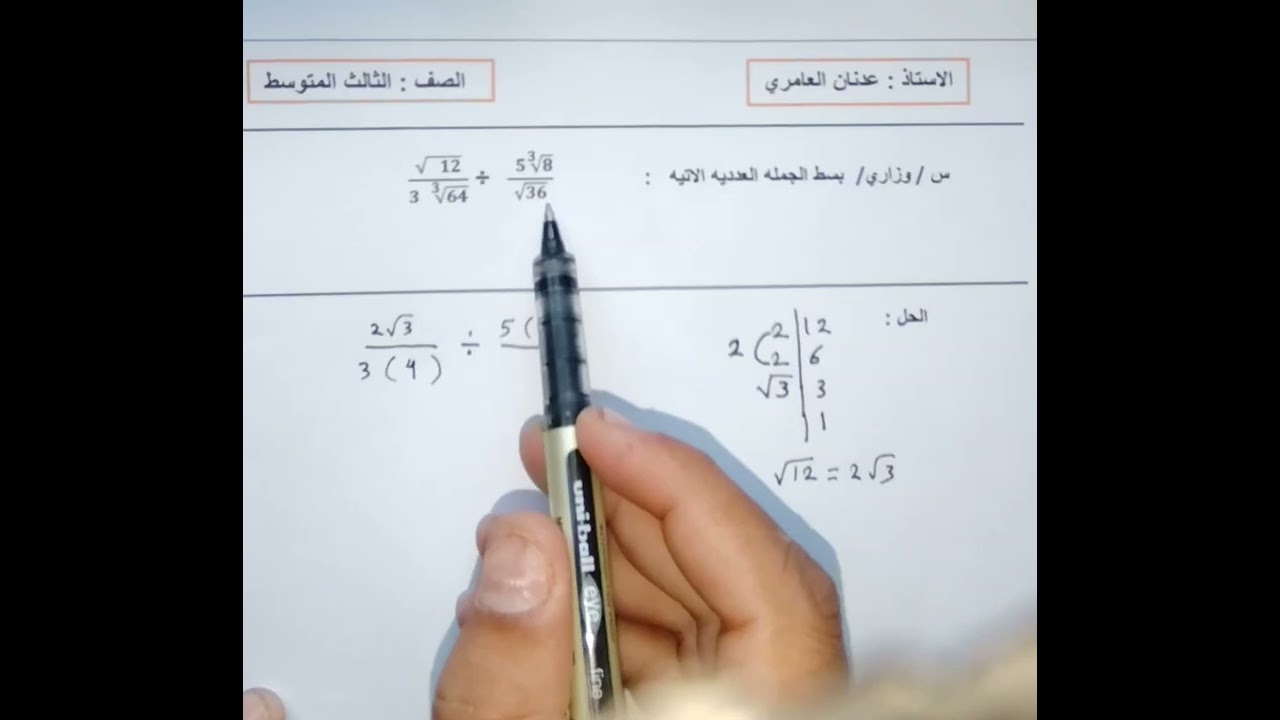 الاستاذ : عدنان العامري
الصف : الثالث المتوسط
س / وزاري/ بسط الجمله العدديه الاتيه :
√12 / 3 ∛64 ÷ 5∛8 / √36
الحل :
2√3 / 3 ( 4 ) ÷ 5 (
2 | 12
2 2 | 6
√3 | 3
| 1
√12 = 2√3
uni-ball eye fine